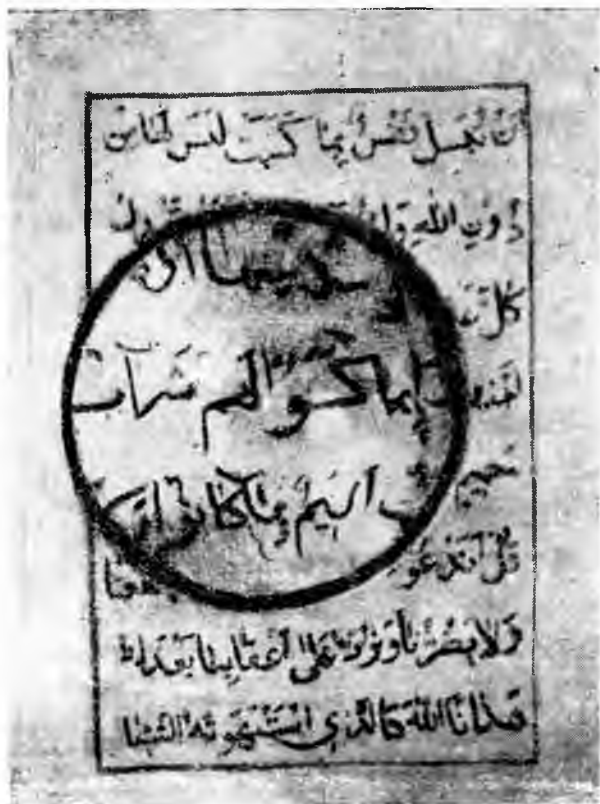 أَنْ تُبْسَلَ نَفْسٌ بِمَا كَسَبَتْ لَيْسَ لَهَا مِنْ
دُونِ اللهِ
مِنْهَا
كُلَّ
بِمَا كَسَبُوا لَهُمْ شَرَابٌ
حَمِيمٍ
أَلِيمٌ بِمَا كَانُوا
قُلْ أَنَدْعُو
وَلَا يَضُرُّنَا وَنُرَدُّ عَلَى أَعْقَابِنَا بَعْدَ إِذْ
هَدَانَا اللهُ كَالَّذِي اسْتَهْوَتْهُ الشَّيَا